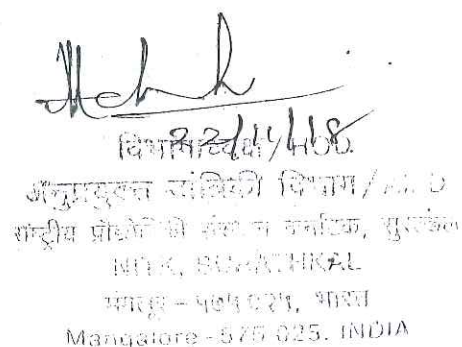 22/11/18
विभागाध्यक्ष / HOD
अनुप्रयुक्त यांत्रिकी विभाग /
राष्ट्रीय प्रौद्योगिकी संस्थान कर्नाटक, सुरत्कल
NITK, SURATHKAL
मंगलूर - ५७५ ०२५, भारत
Mangalore - 575 025. INDIA